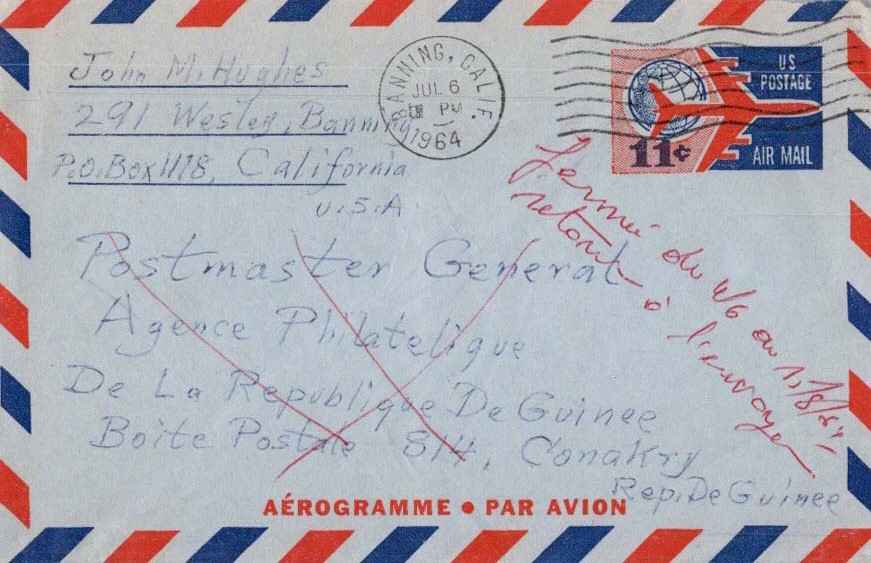 John M. Hughes
291 Wesley, Banning
P.O. Box 1178, California
U.S.A.
BANNING, CALIF.
JUL 6
PM
1964
US
POSTAGE
11¢
AIR MAIL
Fermé du 1/6 au 1/8/64
retour à l'envoyeur
Postmaster General
Agence Philatelique
De La Republique De Guinee
Boite Postale 814, Conakry
Rep. De Guinee
AÉROGRAMME • PAR AVION